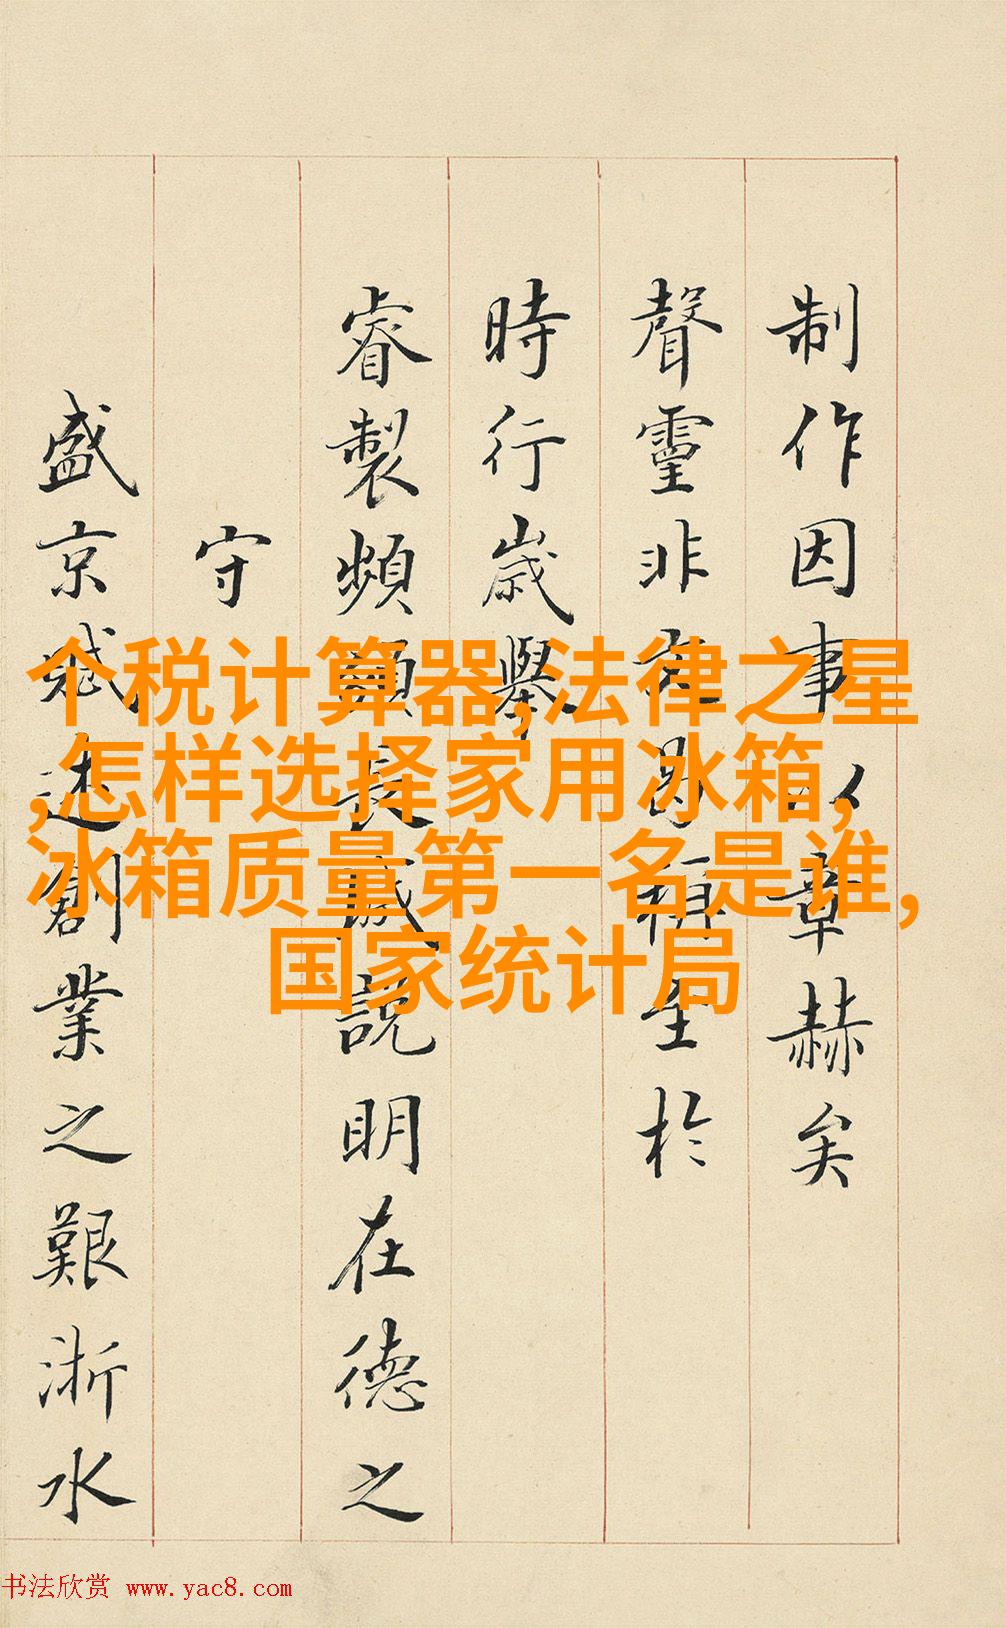 制作因事以章赫矣
聲靈非文曷於
時行歲舉
睿製頻長說明在德之
守
盛京賦述創業之艱浙水
个税计算器,法律之星
,怎样选择家用冰箱,
冰箱质量第一名是谁,
国家统计局
书法欣赏 www.yac8.com